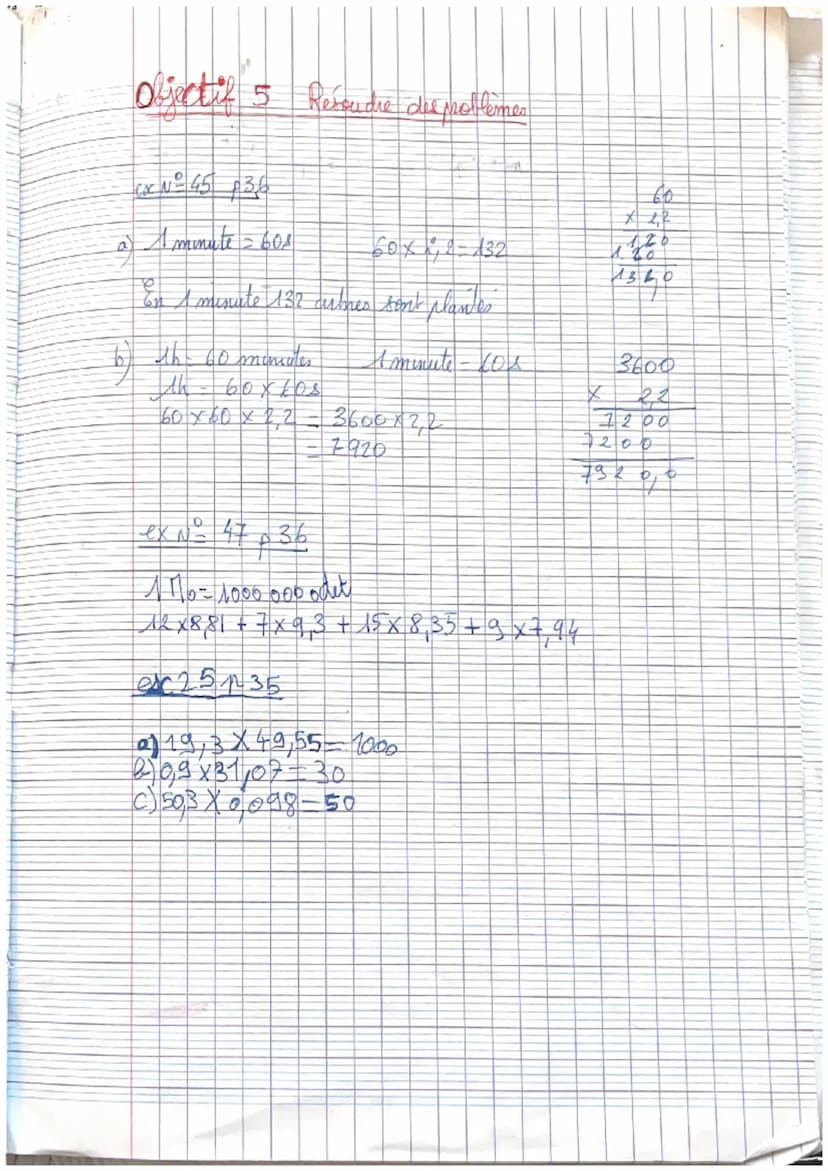 Objectif 5 Résoudre des problèmes
ex N° 45 p36
a) 1 minute = 60s 60 x 2,2 = 132
60
x 2,2
120
120
132,0
En 1 minute 132 arbres sont plantés
b) 1h = 60 minutes 1 minute = 60s
1h = 60 x 60s
60 x 60 x 2,2 = 3600 x 2,2
= 7920
3600
x 2,2
7200
7200
7920,0
ex N° 47 p36
1 Mo = 1000 000 octet
12 x 8,81 + 7 x 9,3 + 15 x 8,35 + 9 x 7,94
ex 25 p 35
a) 19,3 X 49,55 = 1000
b) 0,9 x 31,07 = 30
c) 50,3 X 0,098 = 50